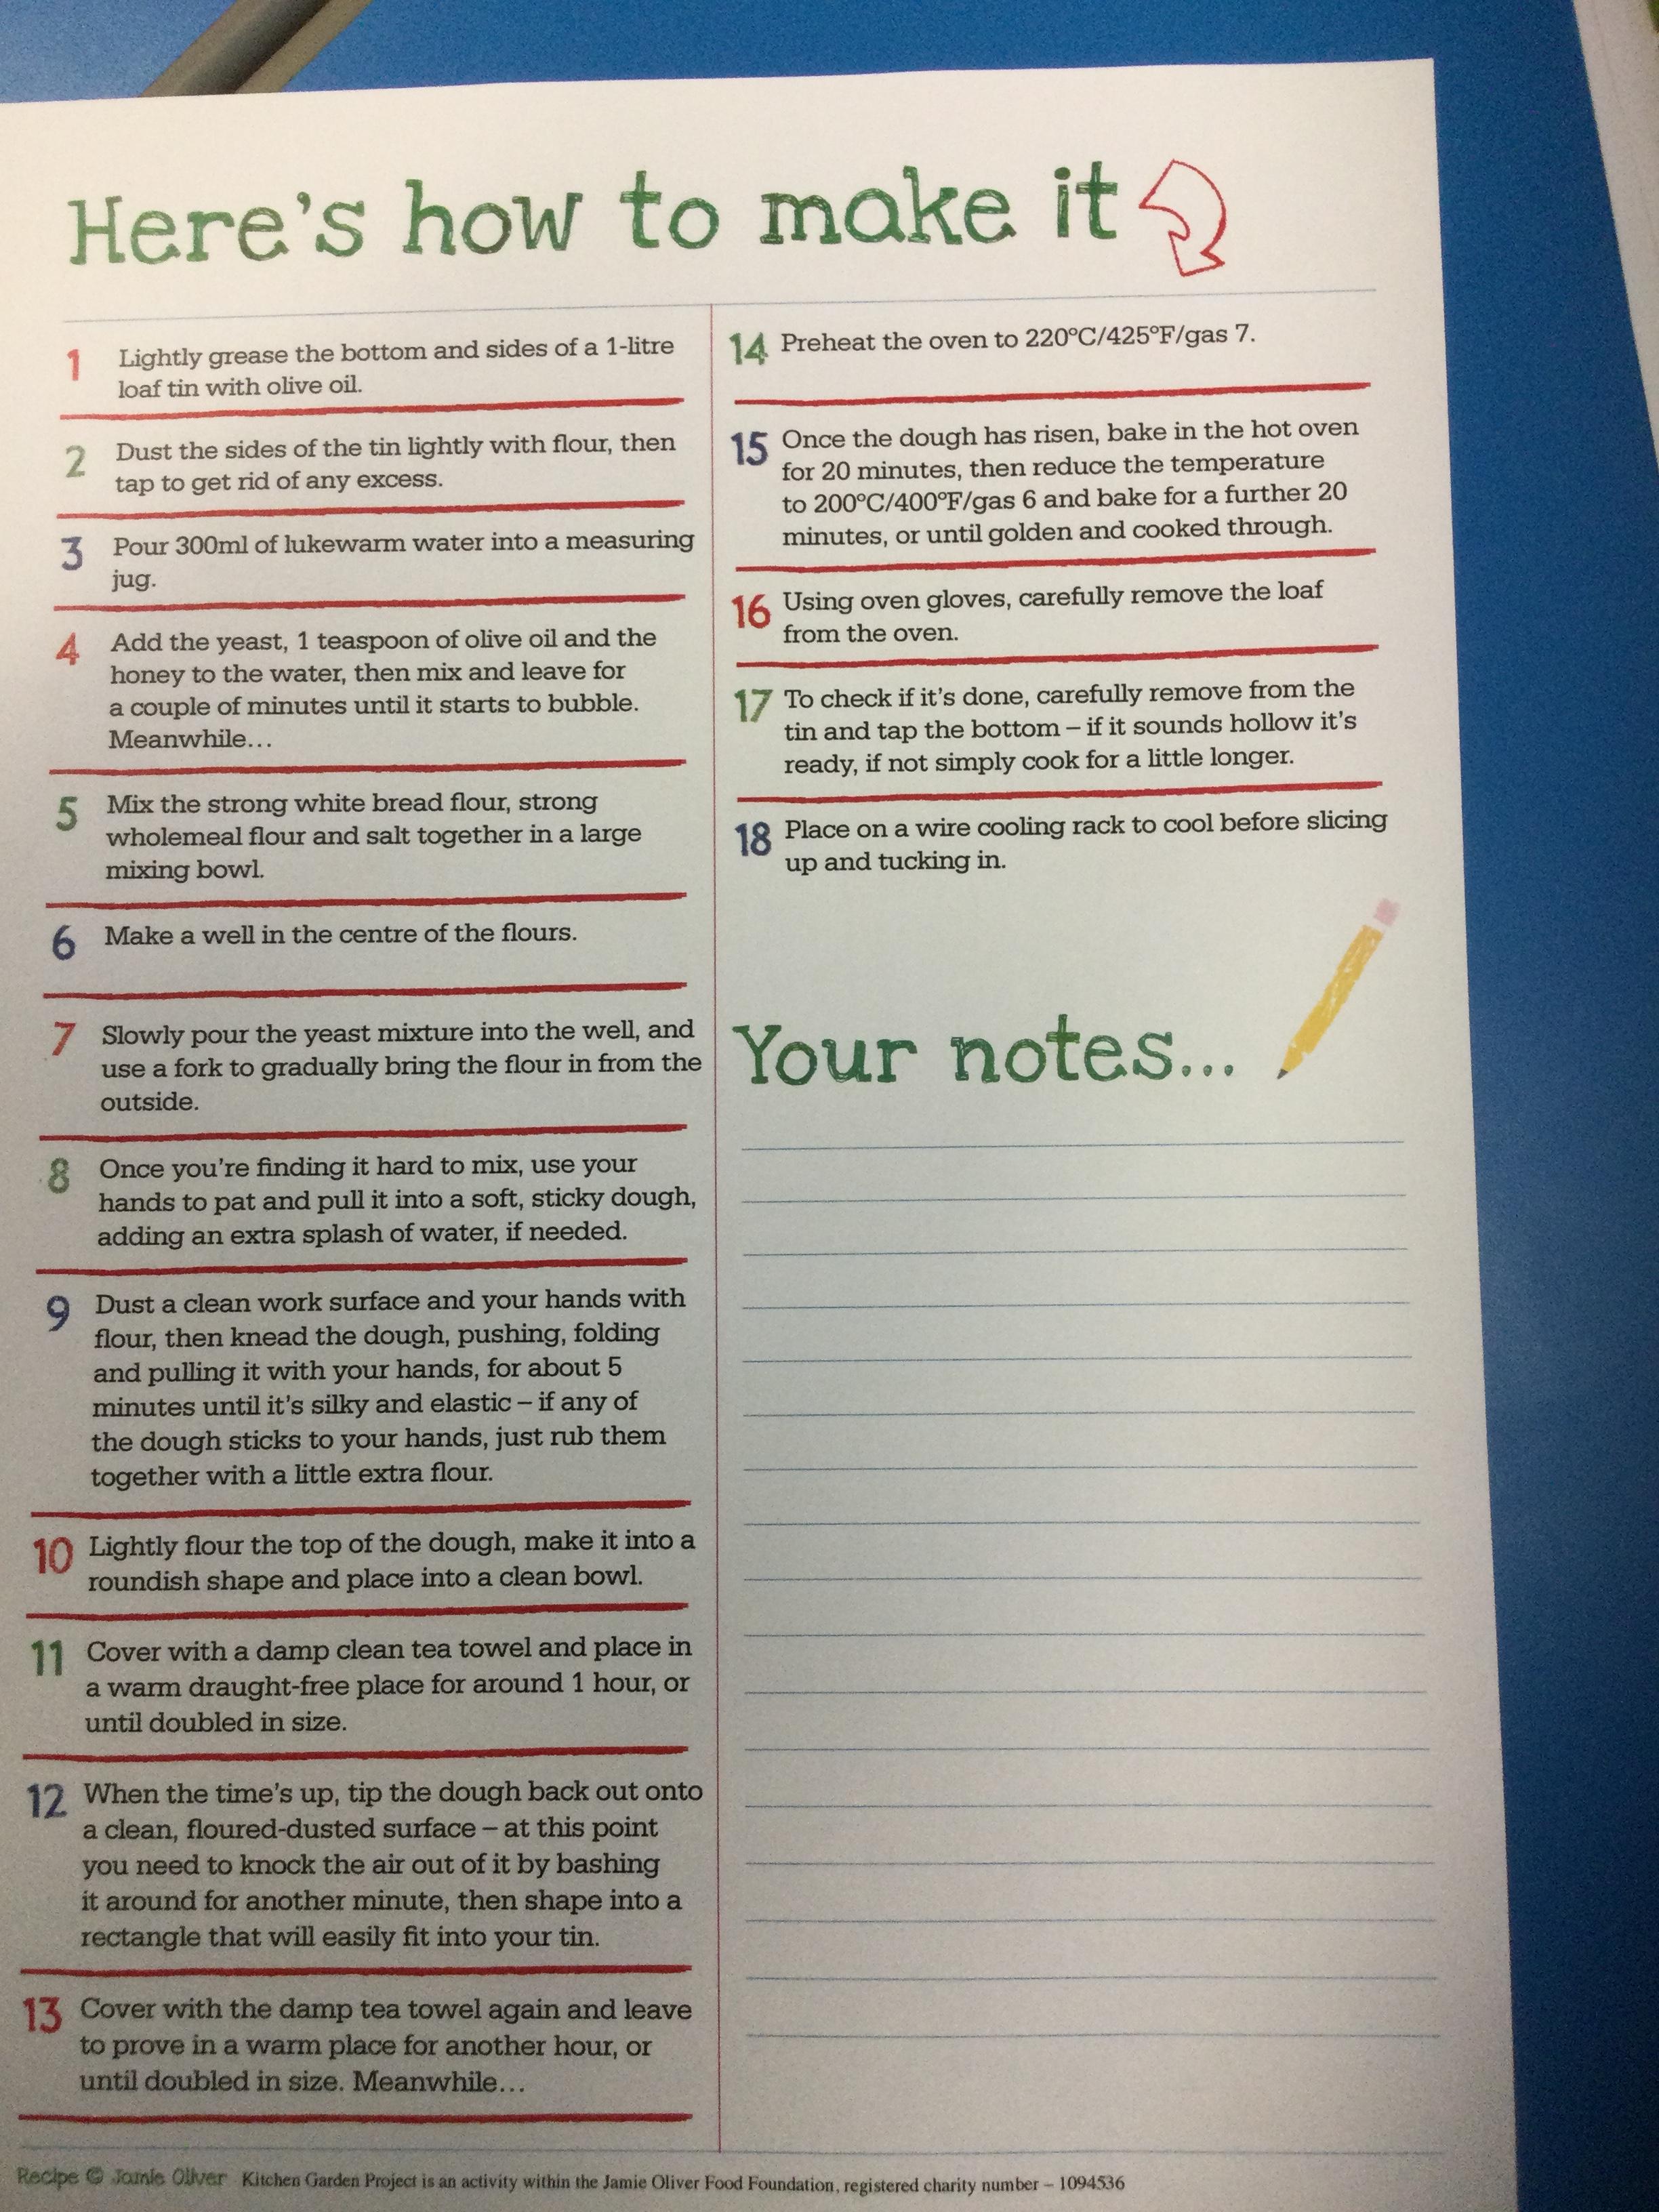 Here's how to make it
1 Lightly grease the bottom and sides of a 1-litre
loaf tin with olive oil.
2 Dust the sides of the tin lightly with flour, then
tap to get rid of any excess.
3 Pour 300ml of lukewarm water into a measuring
jug.
4 Add the yeast, 1 teaspoon of olive oil and the
honey to the water, then mix and leave for
a couple of minutes until it starts to bubble.
Meanwhile...
5 Mix the strong white bread flour, strong
wholemeal flour and salt together in a large
mixing bowl.
6 Make a well in the centre of the flours.
7 Slowly pour the yeast mixture into the well, and
use a fork to gradually bring the flour in from the
outside.
8 Once you're finding it hard to mix, use your
hands to pat and pull it into a soft, sticky dough,
adding an extra splash of water, if needed.
9 Dust a clean work surface and your hands with
flour, then knead the dough, pushing, folding
and pulling it with your hands, for about 5
minutes until it's silky and elastic – if any of
the dough sticks to your hands, just rub them
together with a little extra flour.
10 Lightly flour the top of the dough, make it into a
roundish shape and place into a clean bowl.
11 Cover with a damp clean tea towel and place in
a warm draught-free place for around 1 hour, or
until doubled in size.
12 When the time's up, tip the dough back out onto
a clean, floured-dusted surface – at this point
you need to knock the air out of it by bashing
it around for another minute, then shape into a
rectangle that will easily fit into your tin.
13 Cover with the damp tea towel again and leave
to prove in a warm place for another hour, or
until doubled in size. Meanwhile...
14 Preheat the oven to 220ºC/425ºF/gas 7.
15 Once the dough has risen, bake in the hot oven
for 20 minutes, then reduce the temperature
to 200ºC/400ºF/gas 6 and bake for a further 20
minutes, or until golden and cooked through.
16 Using oven gloves, carefully remove the loaf
from the oven.
17 To check if it's done, carefully remove from the
tin and tap the bottom – if it sounds hollow it's
ready, if not simply cook for a little longer.
18 Place on a wire cooling rack to cool before slicing
up and tucking in.
Your notes...
Recipe © Jamie Oliver Kitchen Garden Project is an activity within the Jamie Oliver Food Foundation, registered charity number – 1094536